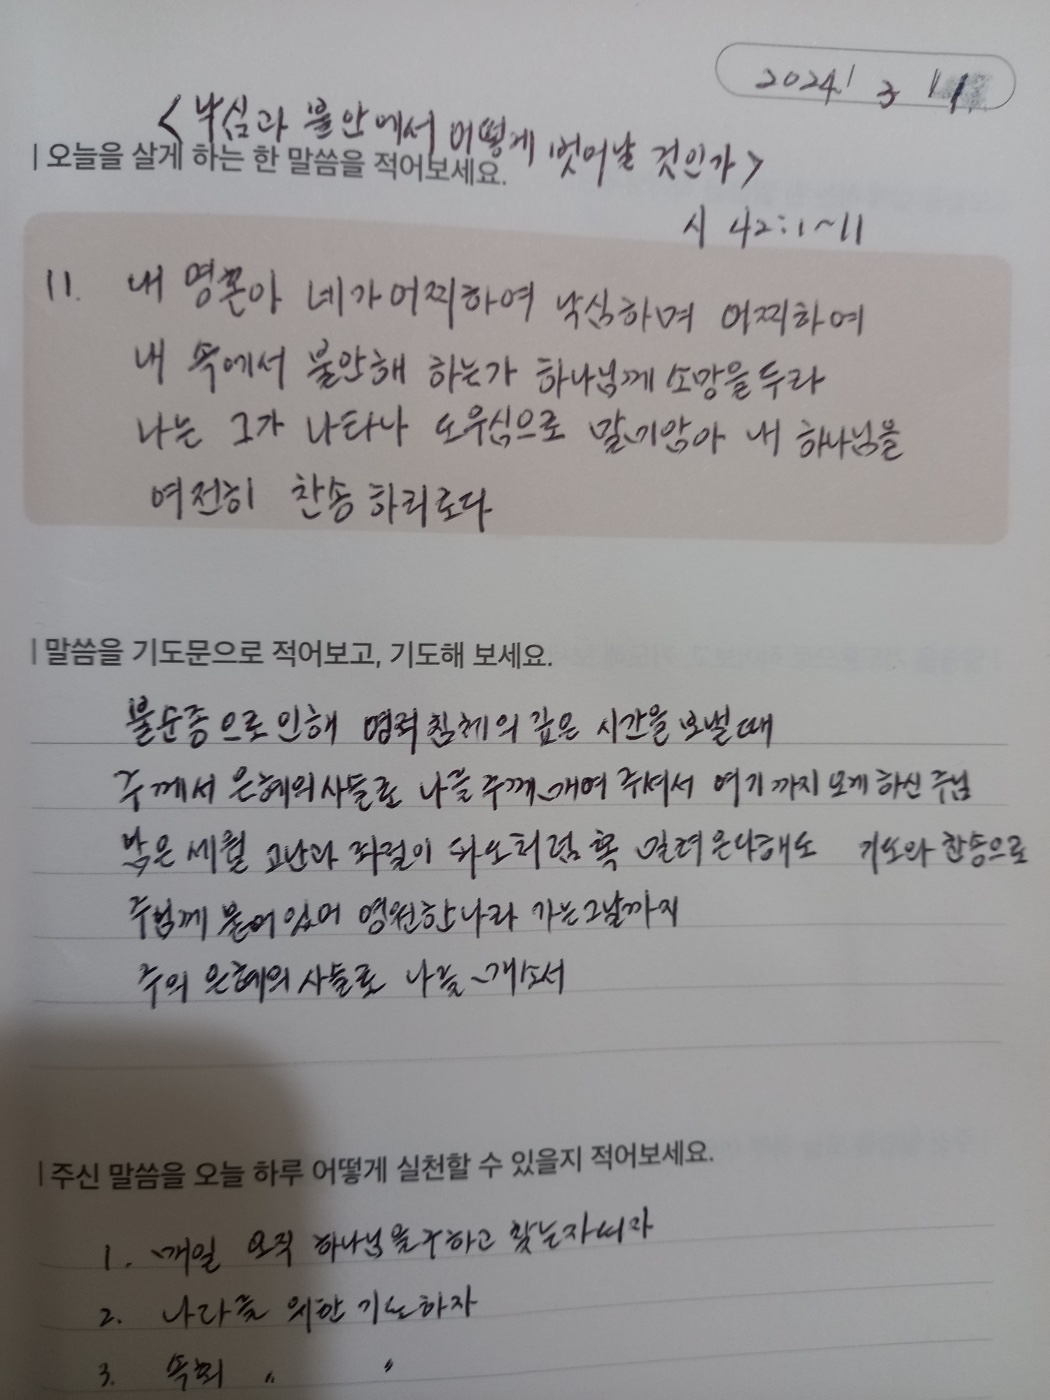 2024. 3 11
<낙심과 불안에서 어떻게 벗어날 것인가>
오늘을 살게 하는 한 말씀을 적어보세요.
시 42:1~11
11. 내 영혼아 네가 어찌하여 낙심하며 어찌하여
내 속에서 불안해 하는가 하나님께 소망을 두라
나는 그가 나타나 도우심으로 말미암아 내 하나님을
여전히 찬송 하리로다
말씀을 기도문으로 적어보고, 기도해 보세요.
불순종으로 인해 영적침체의 깊은 시간을 보낼때
주께서 은혜의사슬로 나를 주께 매여 주셔서 여기까지 오게 하신 주님
남은 세월 고난과 좌절이 파도처럼 혹 밀려 온다해도 기도와 찬송으로
주님께 붙어있어 영원한나라 가는그날까지
주의 은혜의 사슬로 나를 매소서
주신 말씀을 오늘 하루 어떻게 실천할 수 있을지 적어보세요.
1. 매일 오직 하나님을구하고 찾는자되자
2. 나라를 위한 기도하자
3. 속회 〃 〃